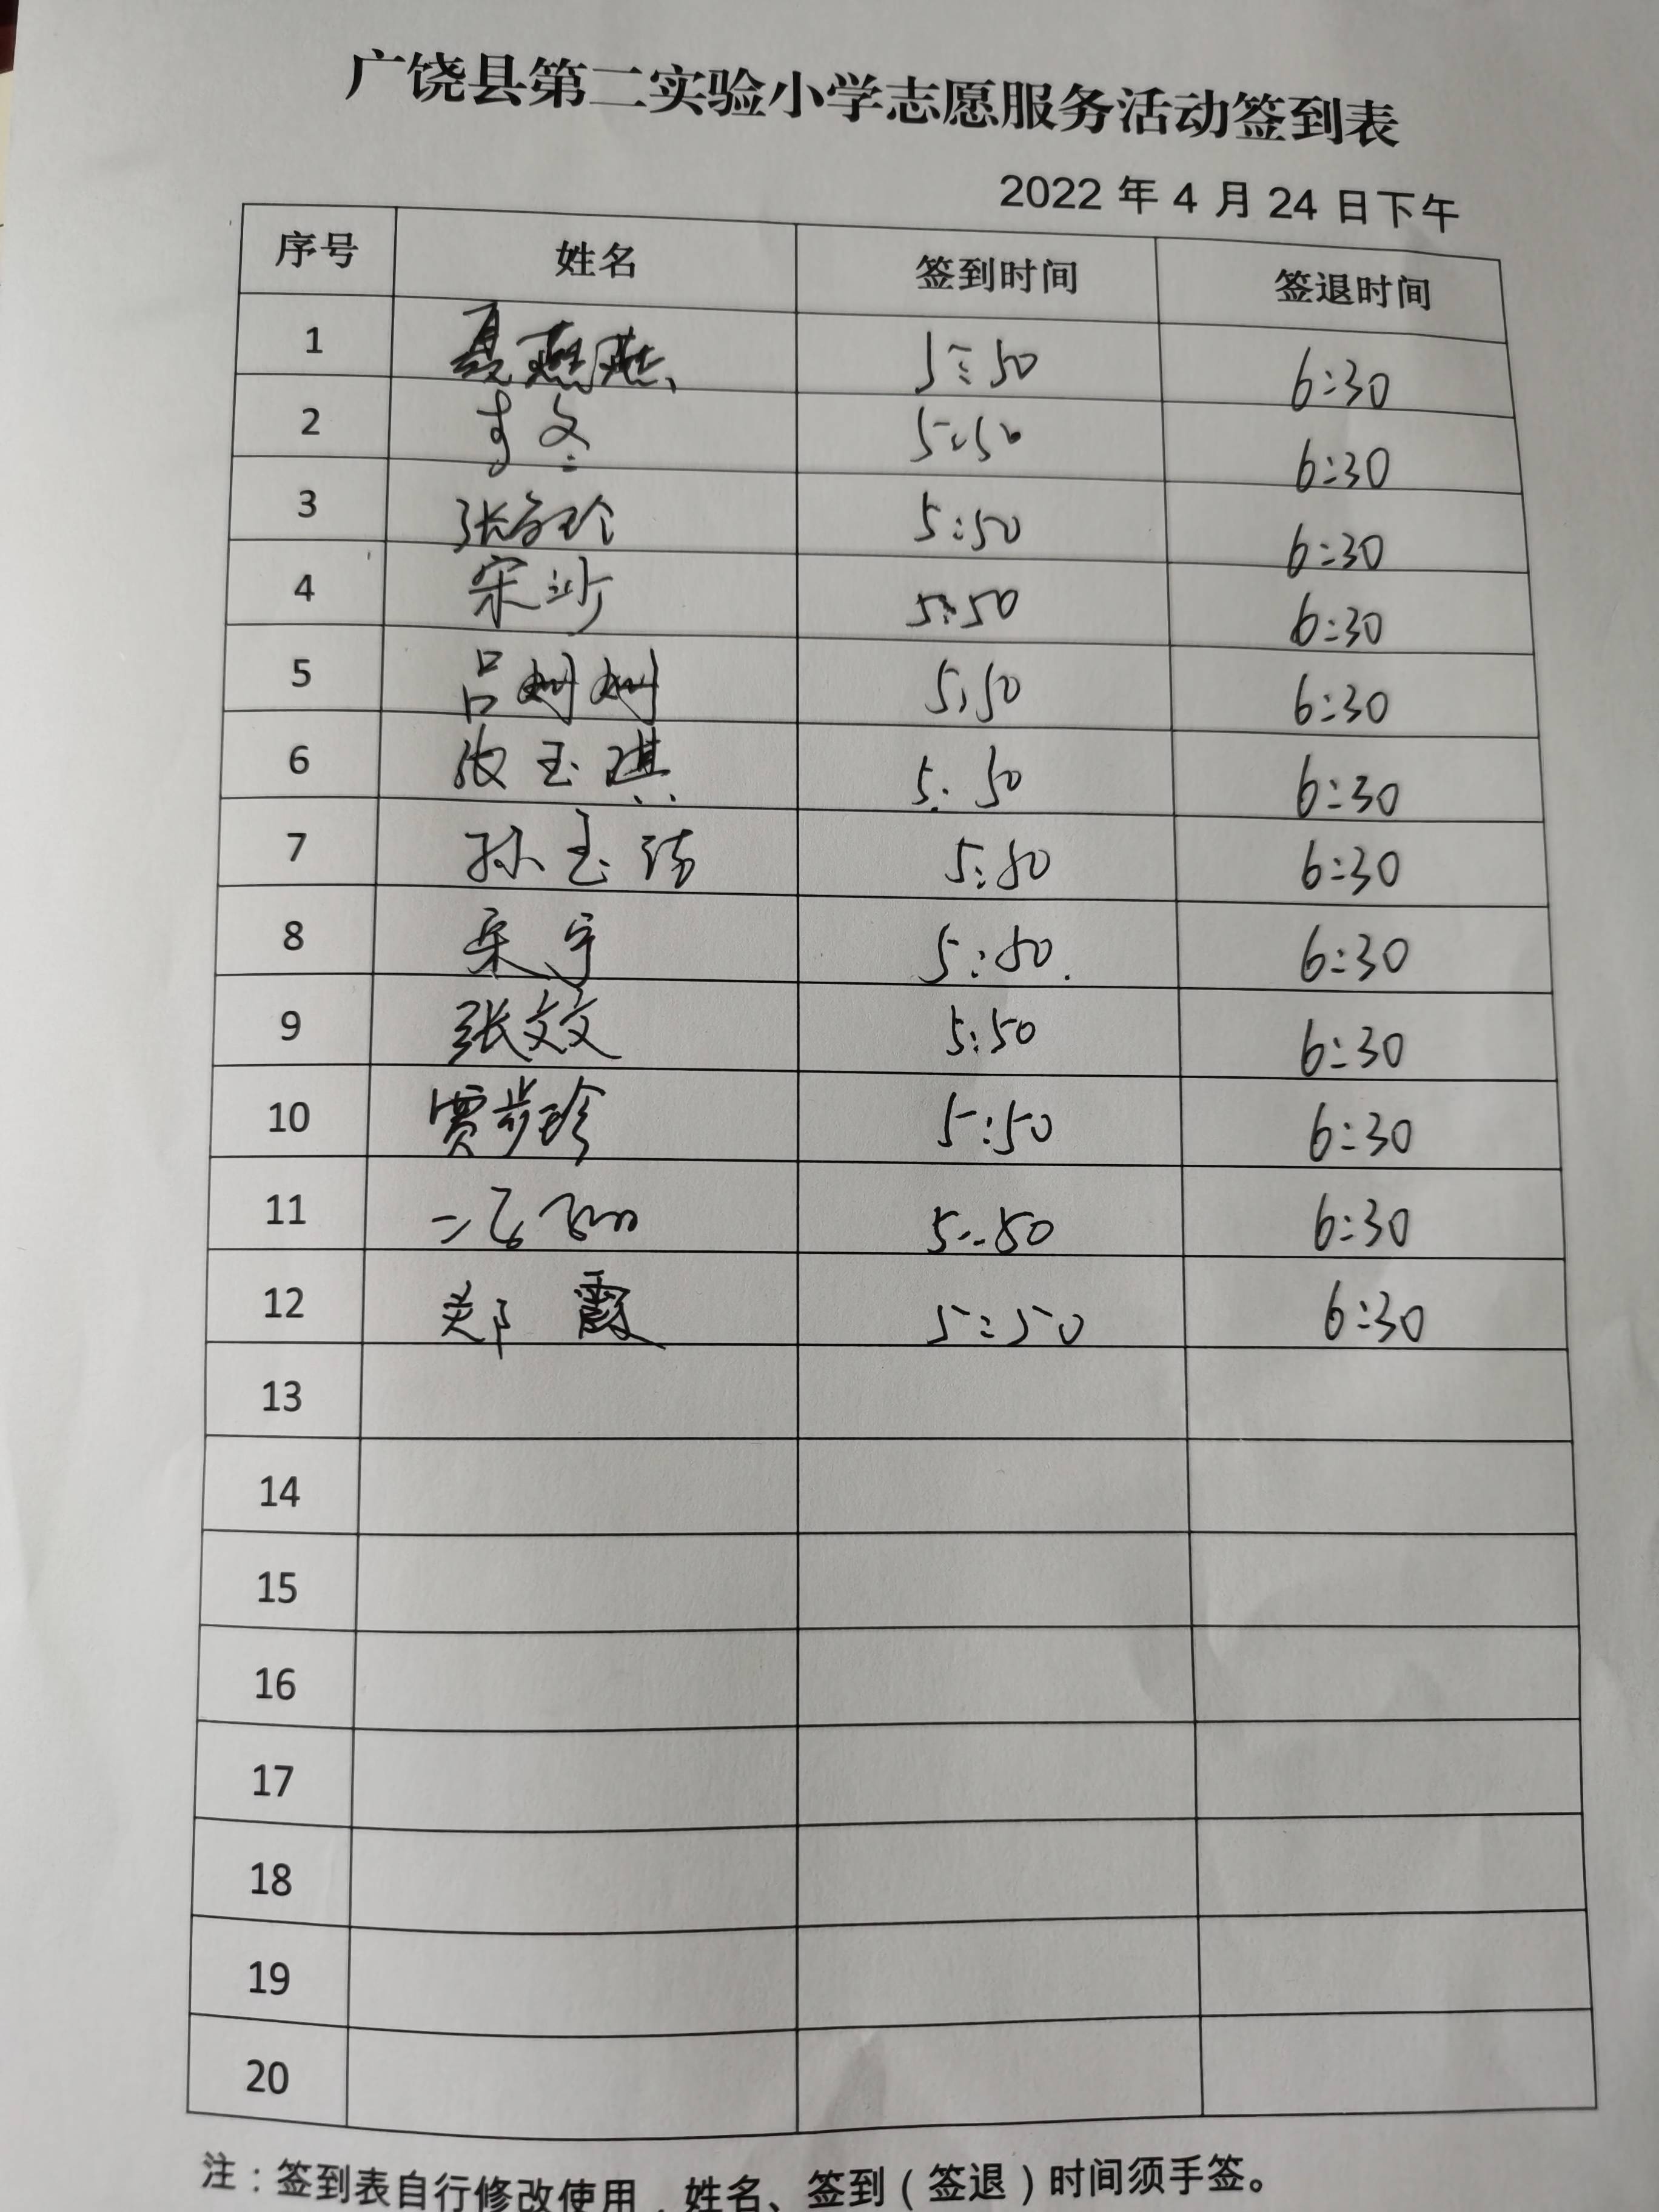 广饶县第二实验小学志愿服务活动签到表
2022 年 4 月 24 日下午
序号 姓名 签到时间 签退时间
1 夏燕燕 5:50 6:30
2 5:50 6:30
3 张 5:50 6:30
4 宋 5:50 6:30
5 吕 5:50 6:30
6 玉琪 5:50 6:30
7 孙玉洁 5:50 6:30
8 宋宇 5:50 6:30
9 张文文 5:50 6:30
10 贾步珍 5:50 6:30
11 5:50 6:30
12 郑霞 5:50 6:30
13
14
15
16
17
18
19
20
注：签到表自行修改使用，姓名、签到（签退）时间须手签。